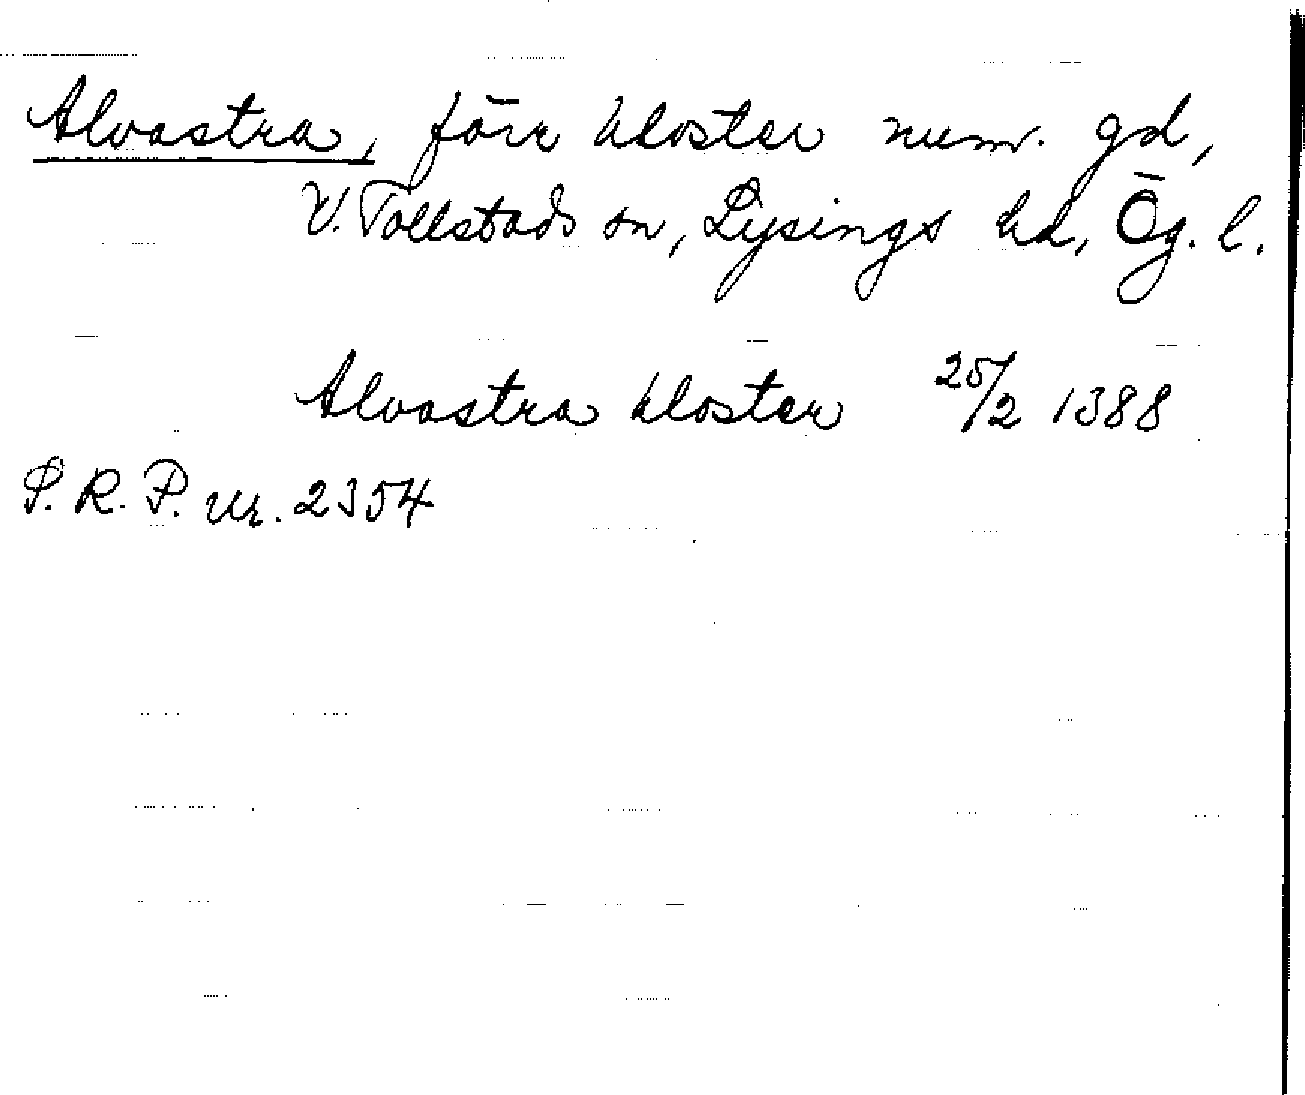 Alvastra, förr kloster num. gd,
V. Tollstads sn, Lysings hd, Ög. l.
Alvastra kloster 25/2 1388
S. R. P. nr. 2354